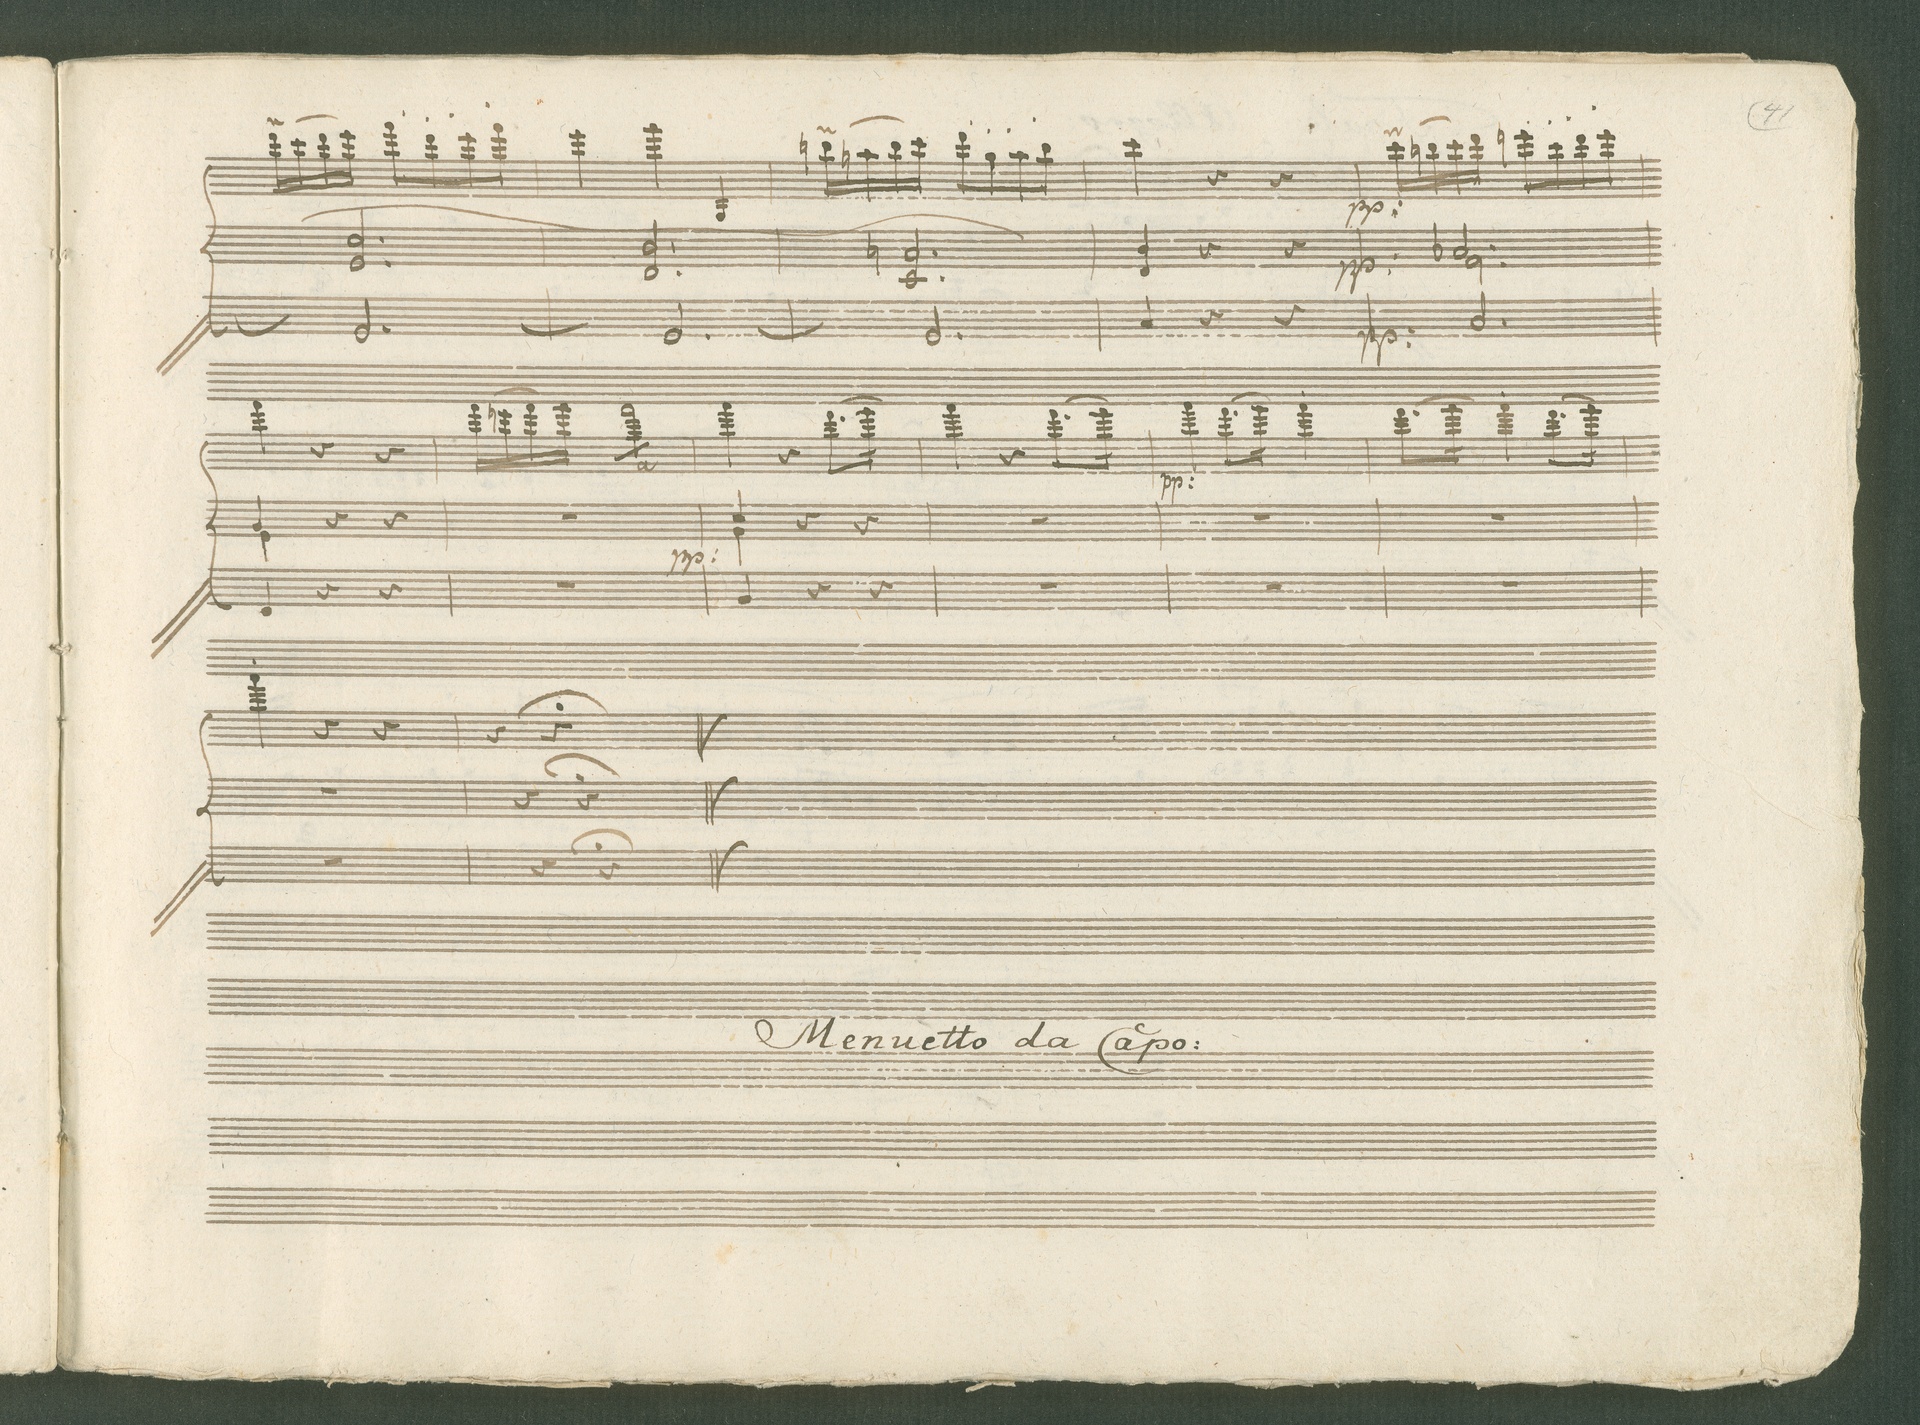 41
pp:
pp:
pp:
pp:
pp:
Menuetto da Capo: